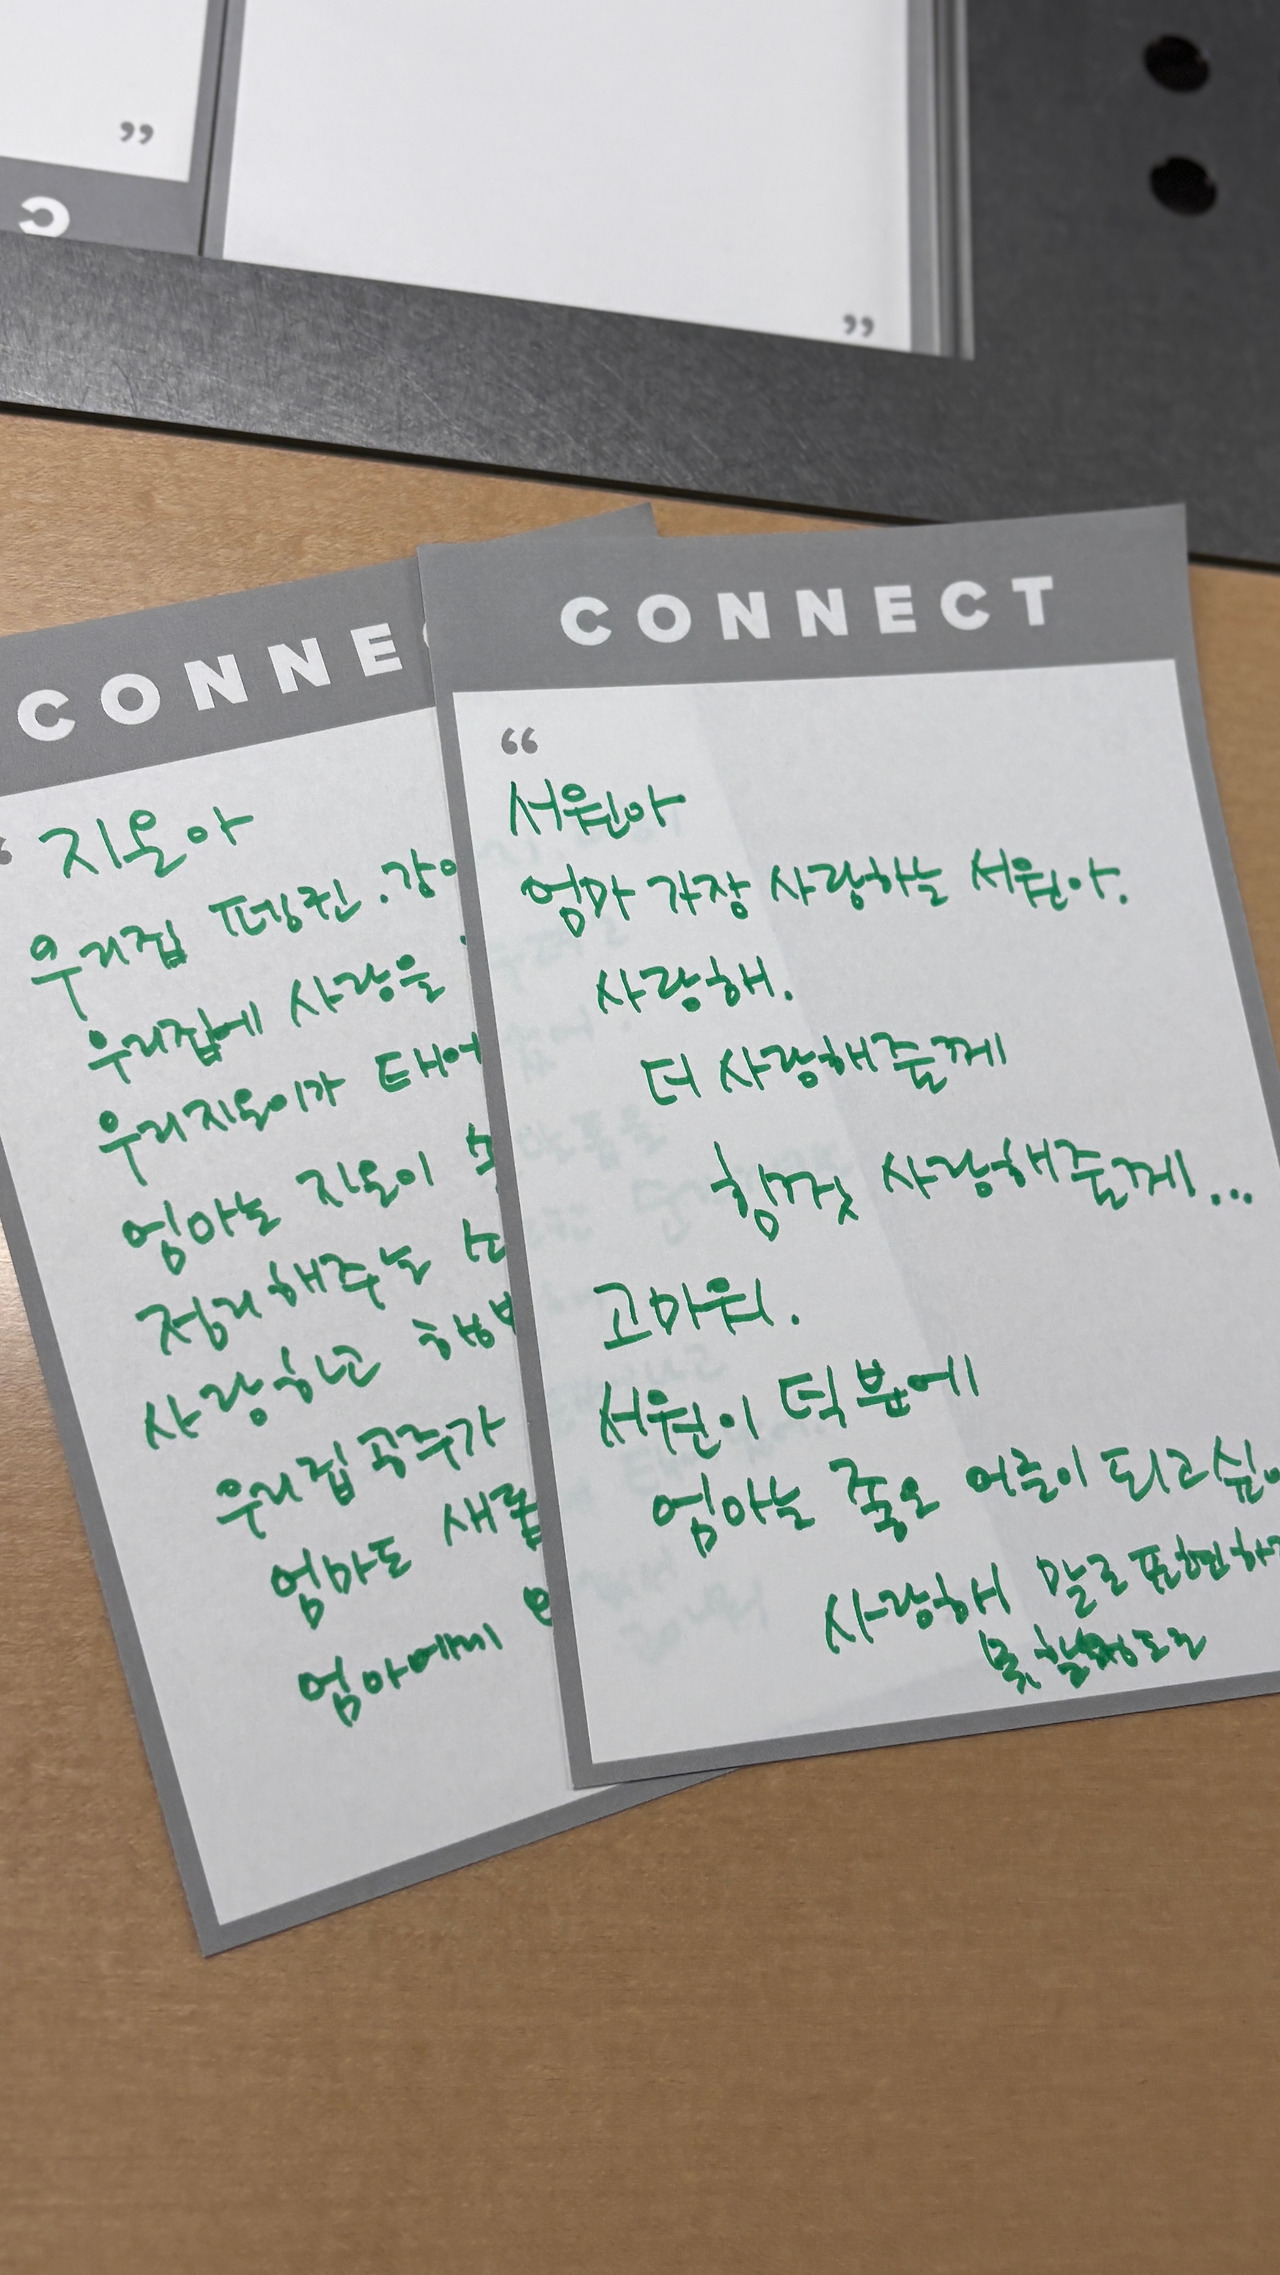 ”
C
”
CONNEC
지온아
우리집 펭퀸.강아
우리집에 사랑을
우리지온이가 태어
엄마는 지온이
정리해주는
사랑하고 행복
우리집공주가
엄마도 새롭
엄마에게
CONNECT
“
서원아
엄마 가장 사랑하는 서원아.
사랑해.
더 사랑해줄께
힘껏 사랑해줄께...
고마워.
서원이 덕분에
엄마는 좋은 어른이 되고싶어
사랑해 말로표현하지
못할정도로